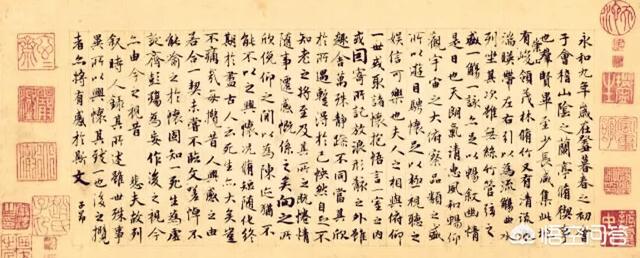 永和九年歲在癸丑暮春之初會
于會稽山陰之蘭亭脩禊事
也群賢畢至少長咸集此地
有崇山峻領茂林脩竹又有清流激
湍暎帶左右引以為流觴曲水
列坐其次雖無絲竹管弦之
盛一觴一詠亦足以暢敘幽情
是日也天朗氣清惠風和暢仰
觀宇宙之大俯察品類之盛
所以遊目騁懷足以極視聽之
娛信可樂也夫人之相與俯仰
一世或取諸懷抱悟言一室之內
或因寄所託放浪形骸之外雖
趣舍萬殊靜躁不同當其欣
於所遇暫得於己怏然自足不
知老之將至及其所之既惓情
隨事遷感慨係之矣向之所
欣俛仰之間以為陳迹猶不
能不以之興懷況脩短隨化終
期於盡古人云死生亦大矣豈
不痛哉每攬昔人興感之由
若合一契未嘗不臨文嗟悼不
能喻之於懷固知一死生為虛
誕齊彭殤為妄作後之視今
亦由今之視昔 悲夫故列
敘時人錄其所述雖世殊事
異所以興懷其致一也後之攬
者亦將有感於斯文 子昂
悟空问答